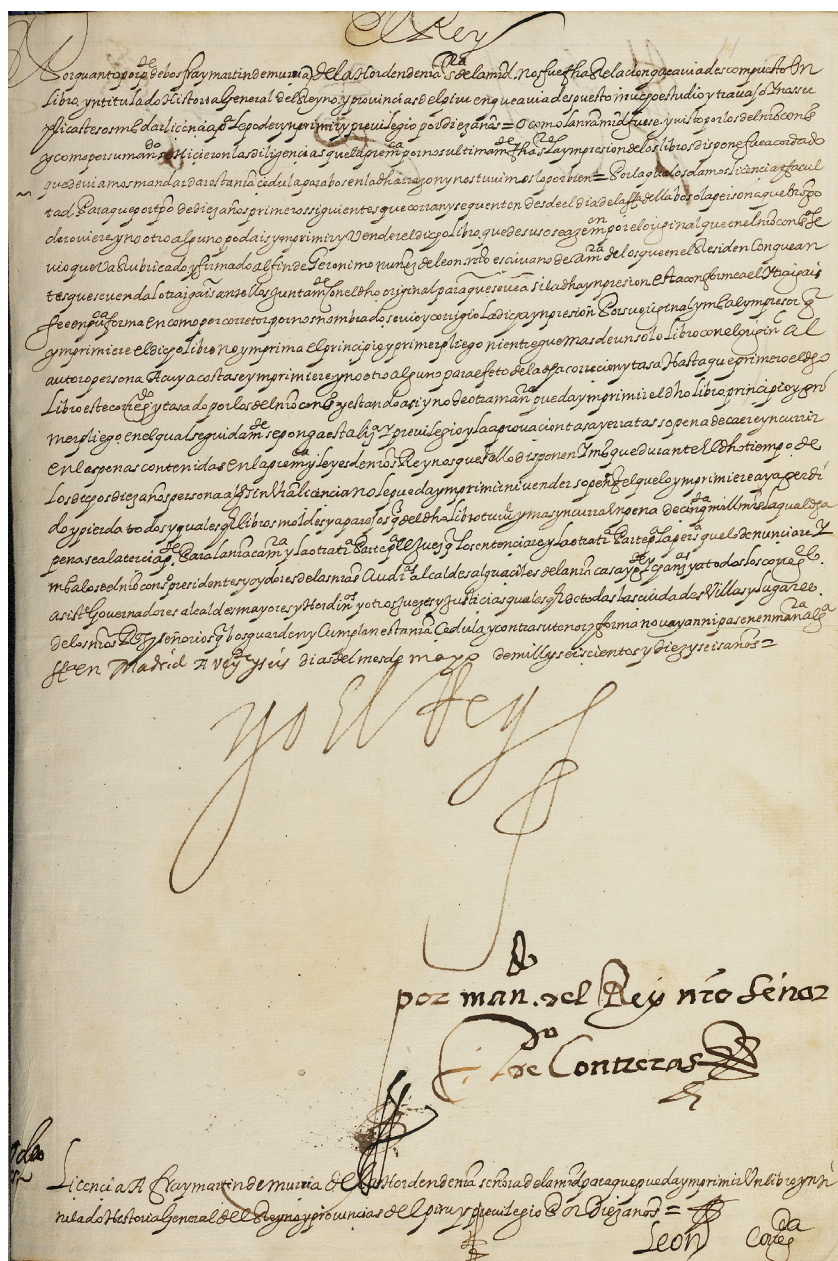 El Rey
Por quanto por pte de bos fray martin de murua de la Horden de nra sra de la md. nos fue fha Relacion que aviades compuesto Un
Libro yntitulado Historia General del Reyno y provincias del piru en que aviades puesto mucho estudio y travajo Y nos su
plicastes os mandar licencia pa le poder ynprimir y previlegio por diez años = o como la nra md fuese. y visto por los del nro consº
y como por su mando se Hicieron las diligencias que la prematica por nos ultimamte fha sre la ympresion de los libros dispone fue acordado
que deviamos mandar dar esta nra cedula para bos en la dha razon y nos tuvimoslo por bien = Por la qual os damos licencia y facul
tad Para que por tpo de diez años primeros siguientes que corran y se quenten desde el dia de la fha della bos o la persona que bro po
der oviere y no otro alguno podais ynprimir y Vender el dicho libro que de suso se aze mencion por el original que en el nro consº se
vio que va Rubricado y firmado al fin de Geronimo nuñez de leon nro escrivano de camra de los que en el Residen Con que an
tes que se venda lo traigais ante ellos Juntamte con el dho original para que se vea si la dha ynpresion esta conforme a el o traigais
fee en puca forma en como por corretor por nos nombrado se vio y corrigio la dicha ynpresion Por su original y mas al ympresor q
ymprimiere el dicho libro no ymprima el principio y primer pliego ni entregue mas de un solo libro con el original al
autor o persona A cuya costa se ymprimiere y no otro alguno para efeto de la dha correcion y tasa Hasta que primero el dho
Libro este corregido y tasado por los del nro consº y estando asi y no de otra manra pueda ymprimir el dho libro principio y pri
mer pliego en el qual seguidamte se ponga esta licia Y previlegio y la aprovacion tasa y erratas so pena de caer e yncurrir
en las penas contenidas en la prematica y leyes de nros Reynos que sre ello disponen Y mas que durante el dho tiempo de
los dichos diez años persona alga sin vra licencia no le pueda ymprimir ni vender so pena q el que lo ymprimiere aya perdi
do y pierda todos y qualesqr libros moldes y aparejos q del dho libro tuviere y mas yncurra en pena de cinqta mill mrs la qual dha
pena sea la tercia pte Para la nra camra y la otra tercia Parte pa el Juez q lo sentenciare y la otra tercia Parte pa la persa que lo denunciare Y
mandamos a los del nro consº presidentes y oydores de las nras Audias alcaldes alguaciles de la nra casa y corte y chans y a todos los corregres
asiste Governadores alcaldes mayores y Hordinos y otros Juezes y Justicias qualesqr de todas las ciudades Villas y lugares
de los nros Reynos y señorios q bos guarden y Cumplan esta nra Cedula y contra su tenor y forma no vayan ni pasen en manra alga
fha en Madrid A veyte y seis dias del mes de mayo de mill y seiscientos y diez y seis años =
yo El Rey
por mando. del Rey nro Señor
Jº de Contreras
Licencia A fray martin de murua de la Horden de nra señora de la md para que pueda ymprimir Un libro ynti
tulado Historia General del Reyno y provincias del piru y previlegio Por diez años =
Leon